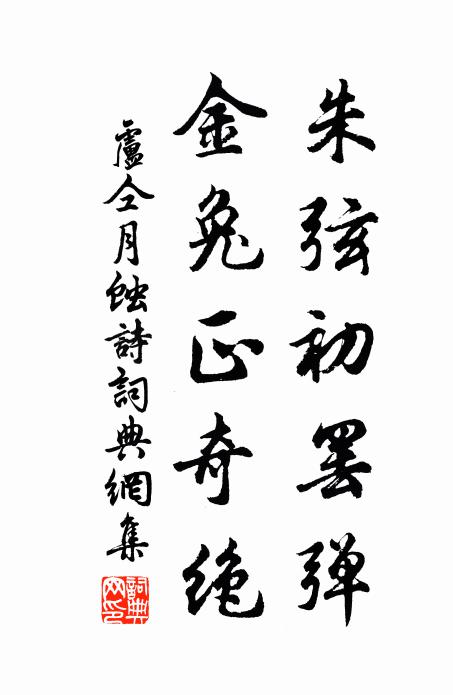 朱弦初罢弹
金兔正奇绝
盧仝月蚀詩詞典網集
詞典網印